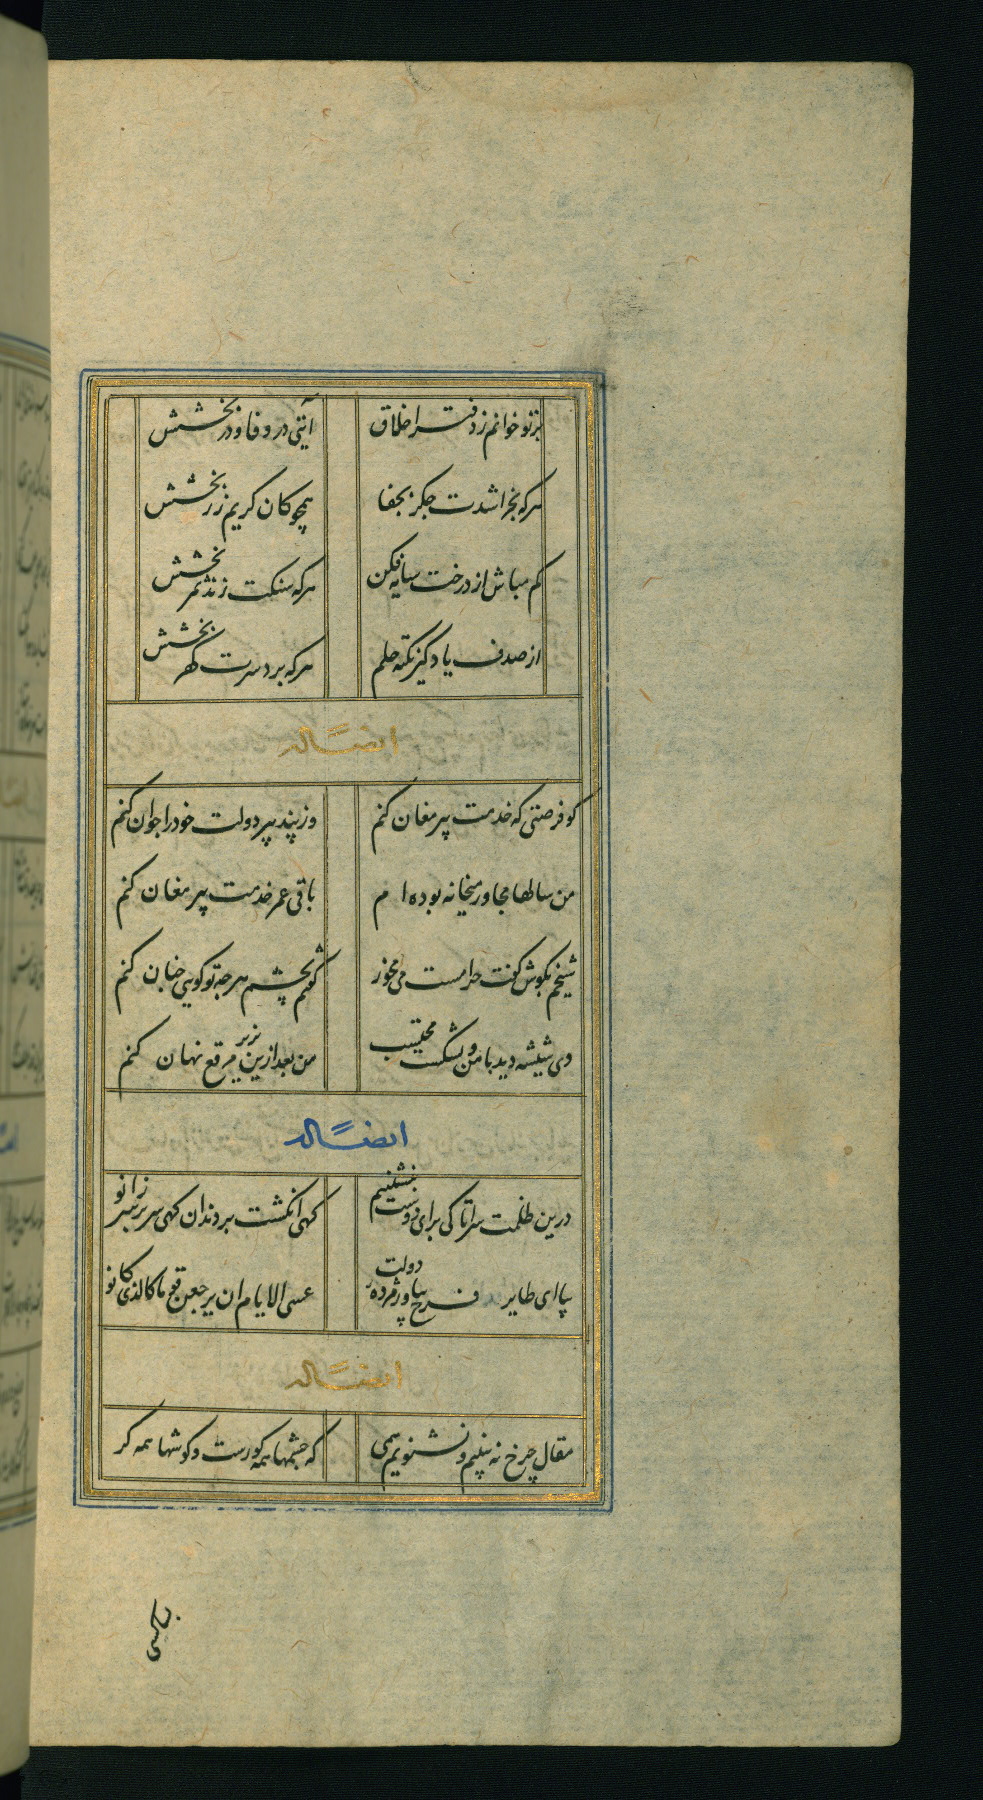 بر تو خوانم ز دفتر اخلاق آیتی در وفا و در بخشش
هر که بخراشدت جگر بجفا همچو کان کریم زر بخشش
کم مباش از درخت سایه فکن هر که سنکت زند ثمر بخشش
از صدف یاد کیر نکته حلم هر که برد سرت کهر بخشش
ایضا له
کو فرصتی که خدمت پیر مغان کنم وز پند پیر دولت خود را جوان کنم
من سالها مجاور میخانه بوده ام باقی عمر خدمت پیر مغان کنم
شیخم بکوش کفت حرامست می مخور کفتم بچشم هر چه تو کویی چنان کنم
دی شیشه دید با من و بشکست محتسب من بعد ازین بزیر مرقع نهان کنم
ایضا له
درین ظلمت سرا تا کی برای دوست بنشینم کهی انکشت بر دندان کهی سر بر سر زانو
بیا ای طایر فرخ بیاور مژده دولت عسی الایام ان یرجعن قوما کالذی کانو
ایضا له
که چشمها همه کورست و کوشها همه کر
بناکسی